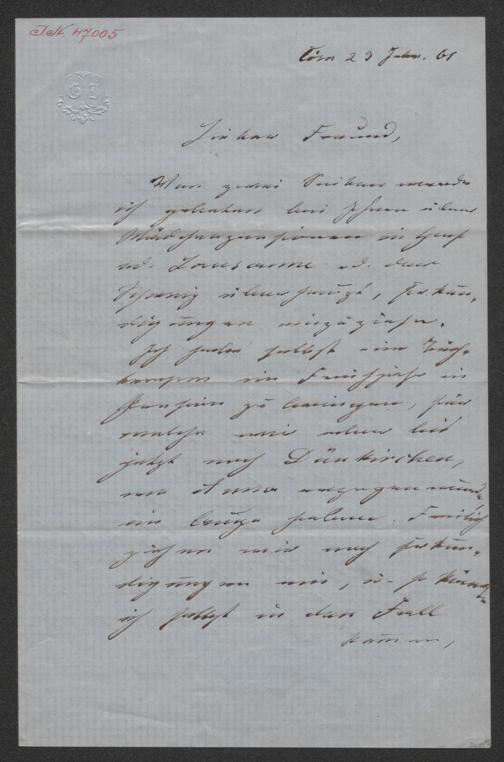 I.N. 47005
Cöln 23 Jan. 61
Lieber Freund,
Von zwei Seiten werde
ich gebeten bei Ihnen über
Mädchenpensionen in Genf
od. Lausanne od. der
Schweiz überhaupt, Erkun-
digungen einzuziehen.
Ich habe selbst eine Töch-
im Frühjahr in
Pension zu bringen, für
welche wir aber bis
jetzt nach Dünkirchen,
wo Anna erzogen wurde
im Auge haben. Freilich
ziehen wir noch Erkun-
digungen ein, u. so könnte
ich selbst in den Fall
kommen,